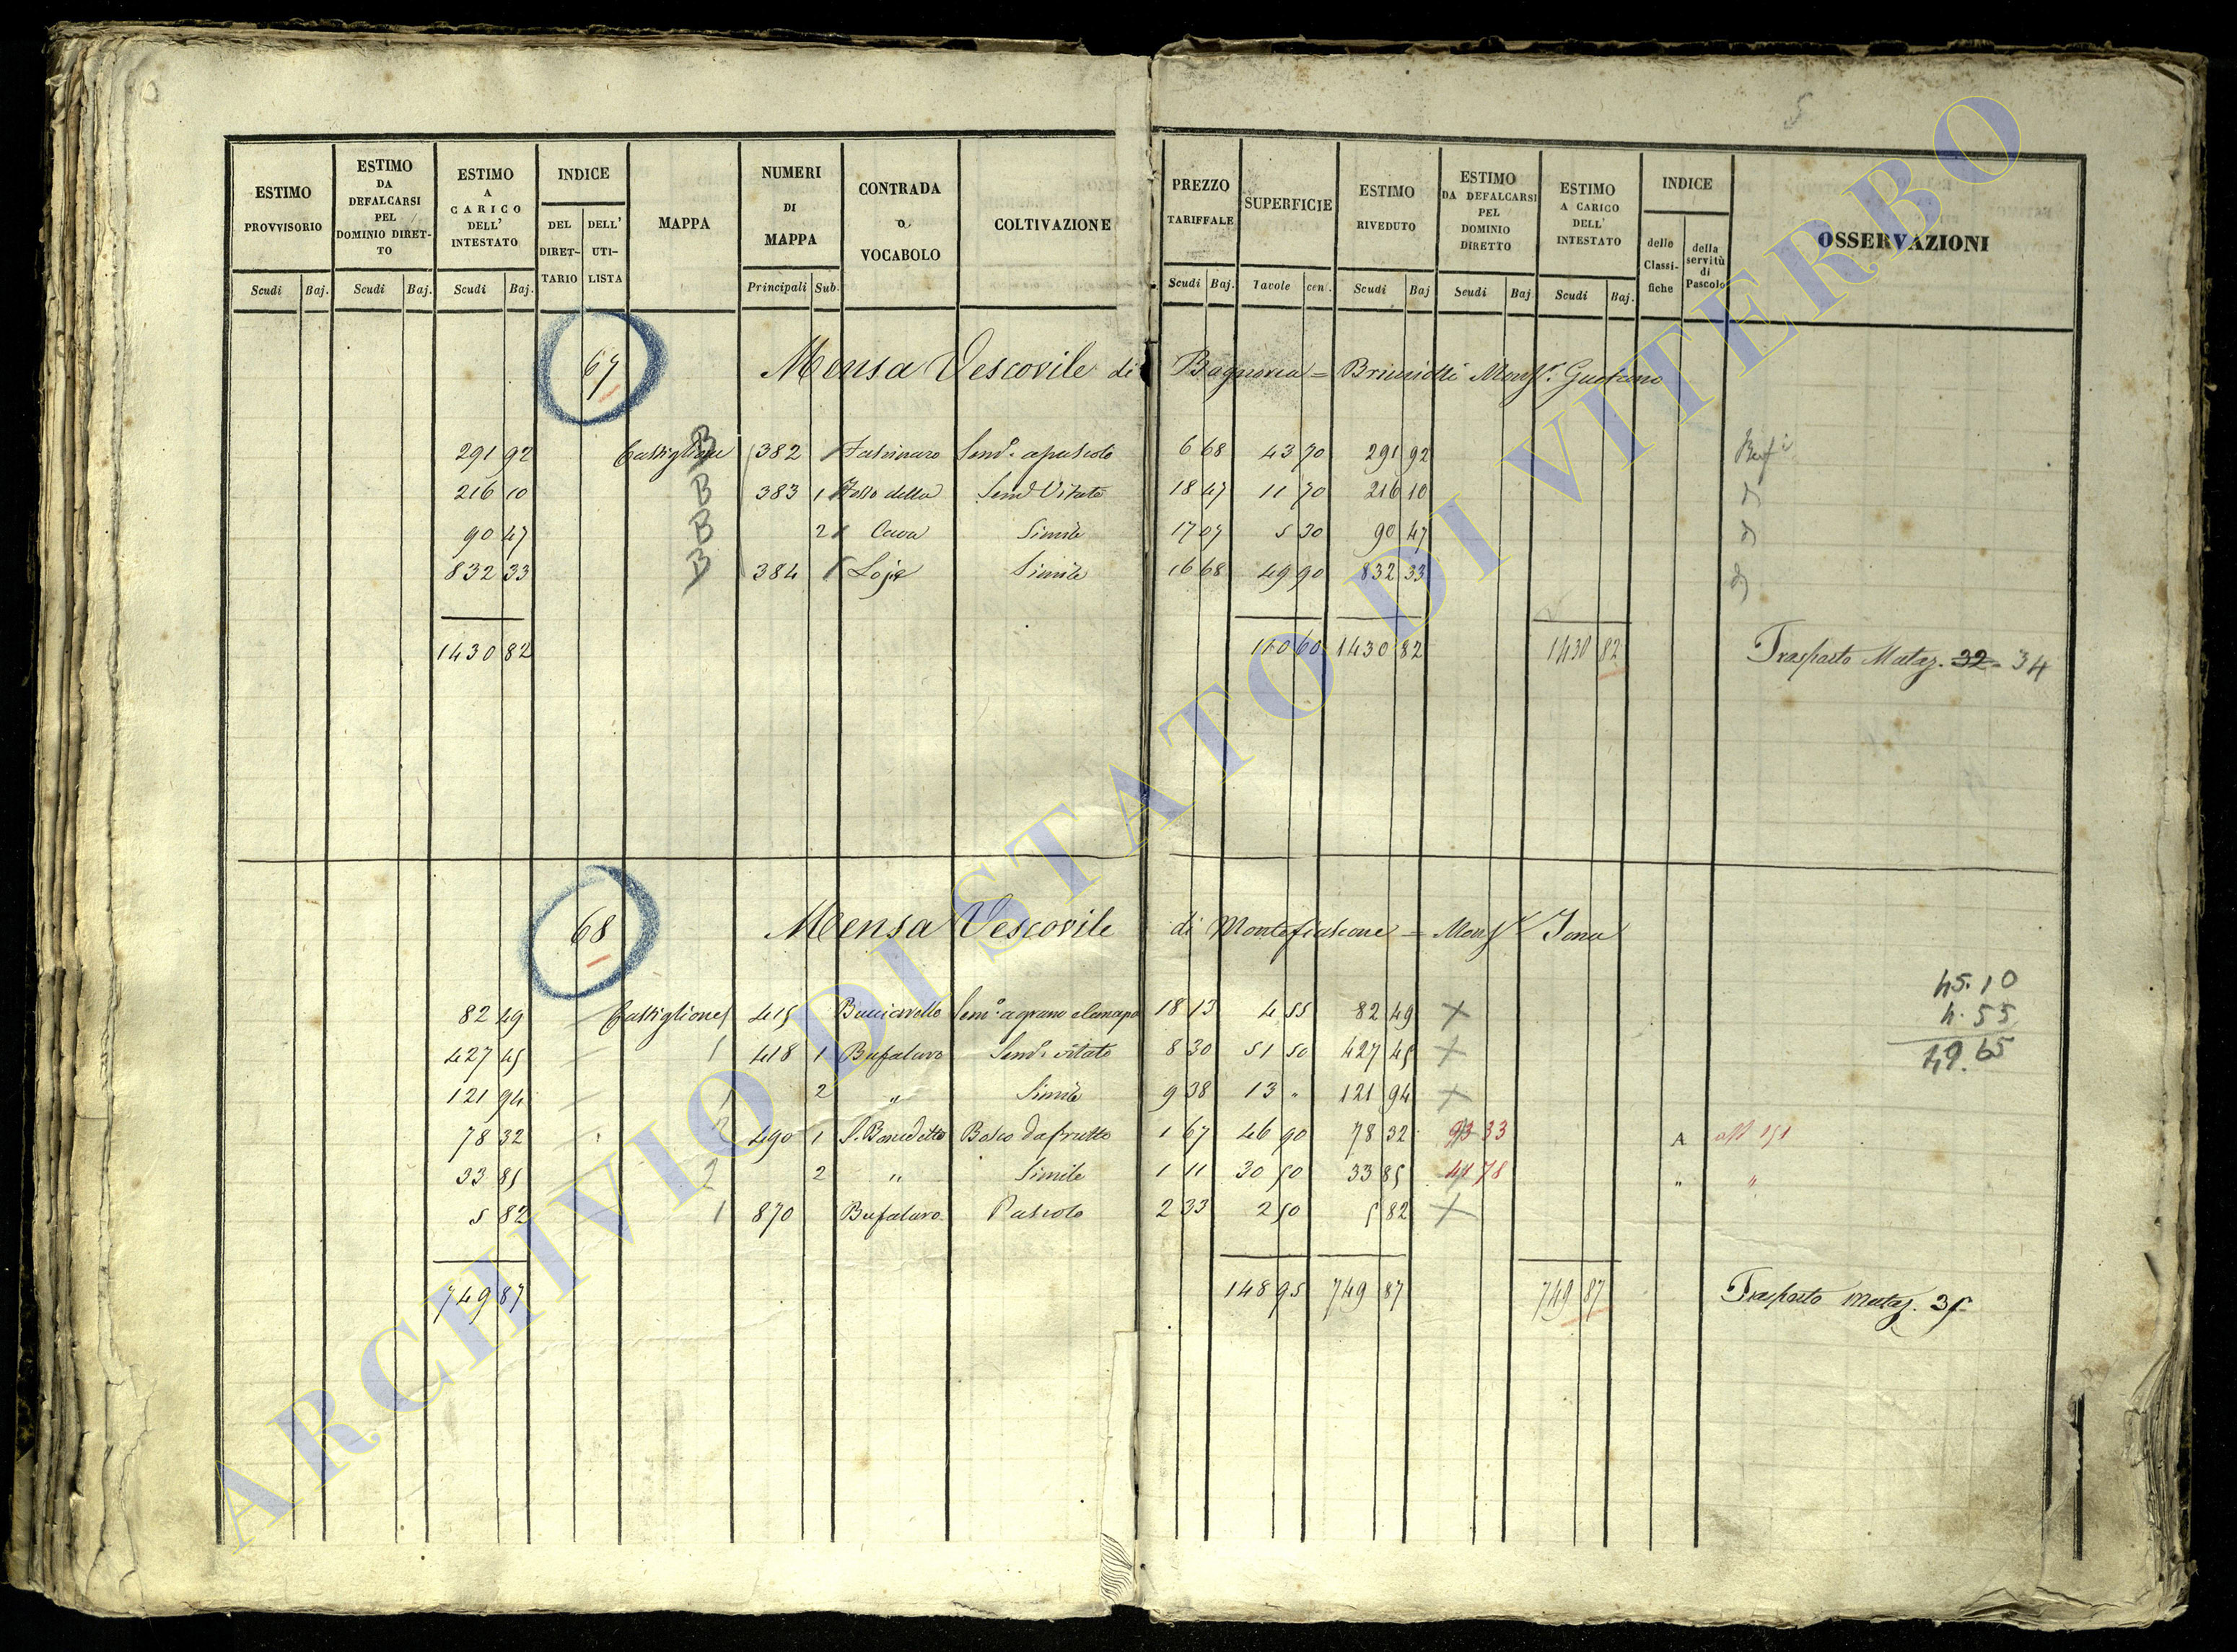 5
ESTIMO PROVVISORIO
ESTIMO DA DEFALCARSI PEL DOMINIO DIRET-TO
ESTIMO A CARICO DELL' INTESTATO
INDICE
DEL DIRET-TARIO
DELL' UTI-LISTA
MAPPA
NUMERI DI MAPPA
CONTRADA o VOCABOLO
COLTIVAZIONE
PREZZO TARIFFALE
SUPERFICIE
ESTIMO RIVEDUTO
ESTIMO DA DEFALCARSI PEL DOMINIO DIRETTO
ESTIMO A CARICO DELL' INTESTATO
INDICE
delle Classi-fiche
della servitù di Pascolo
OSSERVAZIONI
Scudi Baj. Scudi Baj. Scudi Baj. Principali Sub. Scudi Baj. Tavole cen. Scudi Baj Scudi Baj Scudi Baj.
67 Mensa Vescovile di Bagnorea = Monsr. Gaetano
291 92 Castiglione B 382 sem.o a pascolo 6 68 43 70 291 92
216 10 B 383 1 della Sem.o Vitato 18 47 11 70 216 10
90 47 B 2 Cava Simile 17 07 5 30 90 47
832 33 B 384 Simile 16 68 49 90 832 33
1430 82 110 60 1430 82 1430 82 Trasporto Mataz. 32 = 34
68 Mensa Vescovile di Montefiascone = Monsr Jona
45.10
4.55
49.65
82 49 Castiglione 415 Sem.o a grano e canapa 18 13 4 55 82 49 x
427 45 1 418 1 Bufalaro Sem.o vitato 8 30 51 50 427 45 x
121 94 1 2 " Simile 9 38 13 " 121 94 x
78 32 2 490 1 S. Benedetto Bosco da frutto 1 67 46 90 78 32 93 33 A
33 85 2 2 " Simile 1 11 30 50 33 85 41 78 " "
5 82 1 870 Bufalaro Pascolo 2 33 2 50 5 82 x
749 87 148 95 749 87 749 87 Trasporto Mataz. 35
ARCHIVIO DI STATO DI VITERBO